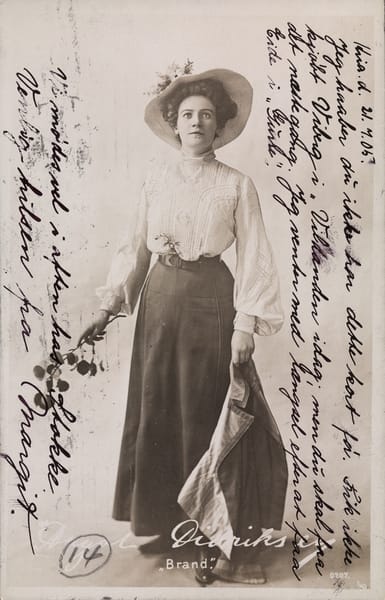 Kra. d. 21.4.06.
Jeg haaber du ikke har dette kort før. Fik ikke
kjøbt Viborg i „Vildanden idag; men du skal faa
det næste gang. Jeg venter med længsel efter at faa
Eide i „Gurli".
Vi mødes vel i aften hos Blokke
Venlig hilsen fra Margit.
Didriksen
„Brand".
14